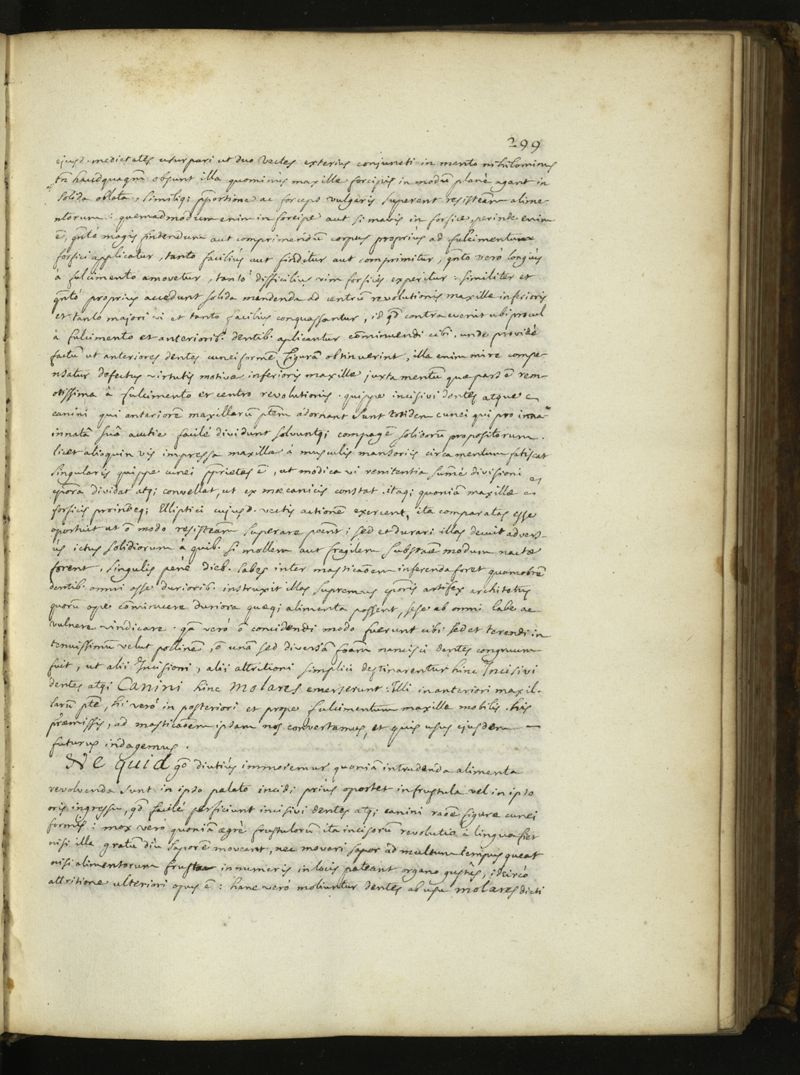 299
ejusd. medietates usurpari ut duo Vectes exterius conjuncti in mento nihilominus
tn̄ haudquaqm̄ obsunt illa quominus maxillæ forcipis in modum planè agant in
solida oblata, similiq; pportione ac forceps vulgaris superent resistām alime-
ntorum: quemadmodum enim in forcipe aut si mavis in forfice, perinde enim
ē, qn̄tò magis findendum aut comprimendū corpus propriùs ad fulcimentum
forfici applicatur, tanto faciliùs aut finditur aut comprimitur, qn̄to verò longiùs
à fulcimento amovetur, tantò difficiliùs vim forficis experitur: similiter et
qn̄tò propriùs accedunt solida mandenda ad centrū revolutionis maxillæ inferioris
et tanto majori vi et tanto faciliùs conquassantur, id qd contra evenit ubi procul
à fulcimento et anteriorib. dentib. aplicantur cōminuendi cibi. unde providè
factū ut anteriores dentes cuneiformē figurā obtinuerint, illa enim mire compe-
nsatur defectus virtutis motivæ inferioris maxillæ juxta mentū quæ pars ē rem-
otissima à fulcimento et centro revolutionis. quippe incisivi dentes atque
canini qui anteriorē maxillarū ptem adornant sunt totidem cunei qui pro
innatā suā acutie facilè dividunt solvuntq; compagē solidorū propositorum.
licet alioquin vis impressa maxillæ à musculis mansoriis circa mentum fatiscat
singularis quippe cunei pprietas ē, ut modica vi renitentia sumè divisioni
cpora dividat atq; convellat, ut ex mæcanicis constat. itaq; quoniā maxillæ
forficis proindeq; Elliptici ejusd. vectis actionē exercent, ita comparatas esse
oportuit ut ō modo resistām superare poēnt; sed et durari illas decuit advers-
ùs ictus solidiorum à quib. si mollem aut fragilem substāæ modum nactæ
forent, singulis penè dieb. labes inter masticaōem inferenda foret quamobrē
dentib. omni osse duriorib. instruxit illas supremus cporis artifex architectus
quorū ope cōminuere duriora quæq; alimenta possent, sese ab omni labe ac
vulnere vindicare. qa verò ō concidendi modo fuerunt cibi sed et terendi in
tenuissimū velut pollinē, ō unā sed diversā foām nancisci dentes congruum
fuit, ut alii Incisioni, alii attritioni simplici destinarentur hinc Incisivi
dentes atq; Canini hinc Molares emerserunt. Illi in anteriori maxil-
larū pte, hi verò in posteriori et prope fulcimentum maxillæ mobilis. his
præmissis, ad masticaōem ipsam nos convertamus, et quis usus ejusdem
futurus indagemus.
Ne quid gō diutiùs immoremur quoniā intrudenda alimenta
revolvenda sunt in ipso palato incidi priùs oportet in frustula vel in ipso
oris ingressu, qd facilè perficiunt incisivi dentes atq; canini raōe figuræ cunei
formis: mox verò quoniā ægrè frustulorū ita incisorū revolutio à lingua fiet
nisi illæ gratū diù saporē moveant, nec moveri sapor ad multum tempus queat
nisi alimentorum frusta in numeris in locis pateant organo gustùs, idcircò
attritione ulteriori opus ē: hanc verò moliuntur dentes ab usu molares dicti